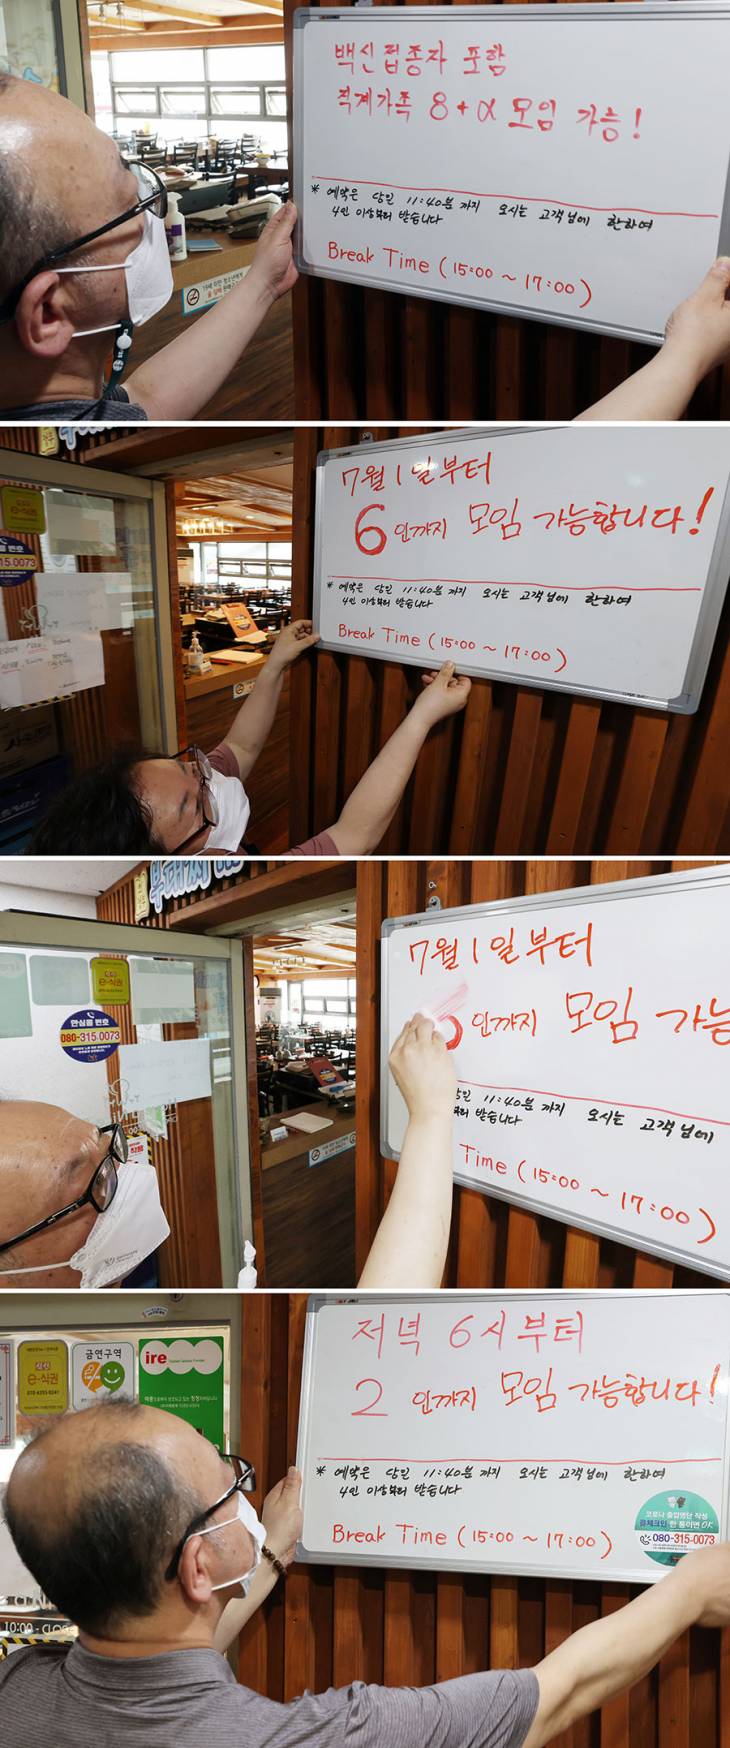 백신접종자 포함
직계가족 8+α 모임 가능!
* 예약은 당일 11:40분 까지 오시는 고객님에 한하여
4인 이상부터 받습니다
Break Time (15:00 ~ 17:00)
7월 1일부터
6인까지 모임 가능합니다!
* 예약은 당일 11:40분 까지 오시는 고객님에 한하여
4인 이상부터 받습니다
Break Time (15:00 ~ 17:00)
e-식권
번호
15.0073
7월 1일부터
인까지 모임 가능
당일 11:40분 까지 오시는 고객님에
부터 받습니다
Time (15:00 ~ 17:00)
부대찌개
e-식권
안심콜 번호
080-315.0073
저녁 6시부터
2인까지 모임 가능합니다!
* 예약은 당일 11:40분 까지 오시는 고객님에 한하여
4인 이상부터 받습니다
Break Time (15:00 ~ 17:00)
코로나 출입명단 작성
콜체크인 한 통이면 OK
080-315-0073
e-식권
금연구역
ire
10:00 - CLOSE